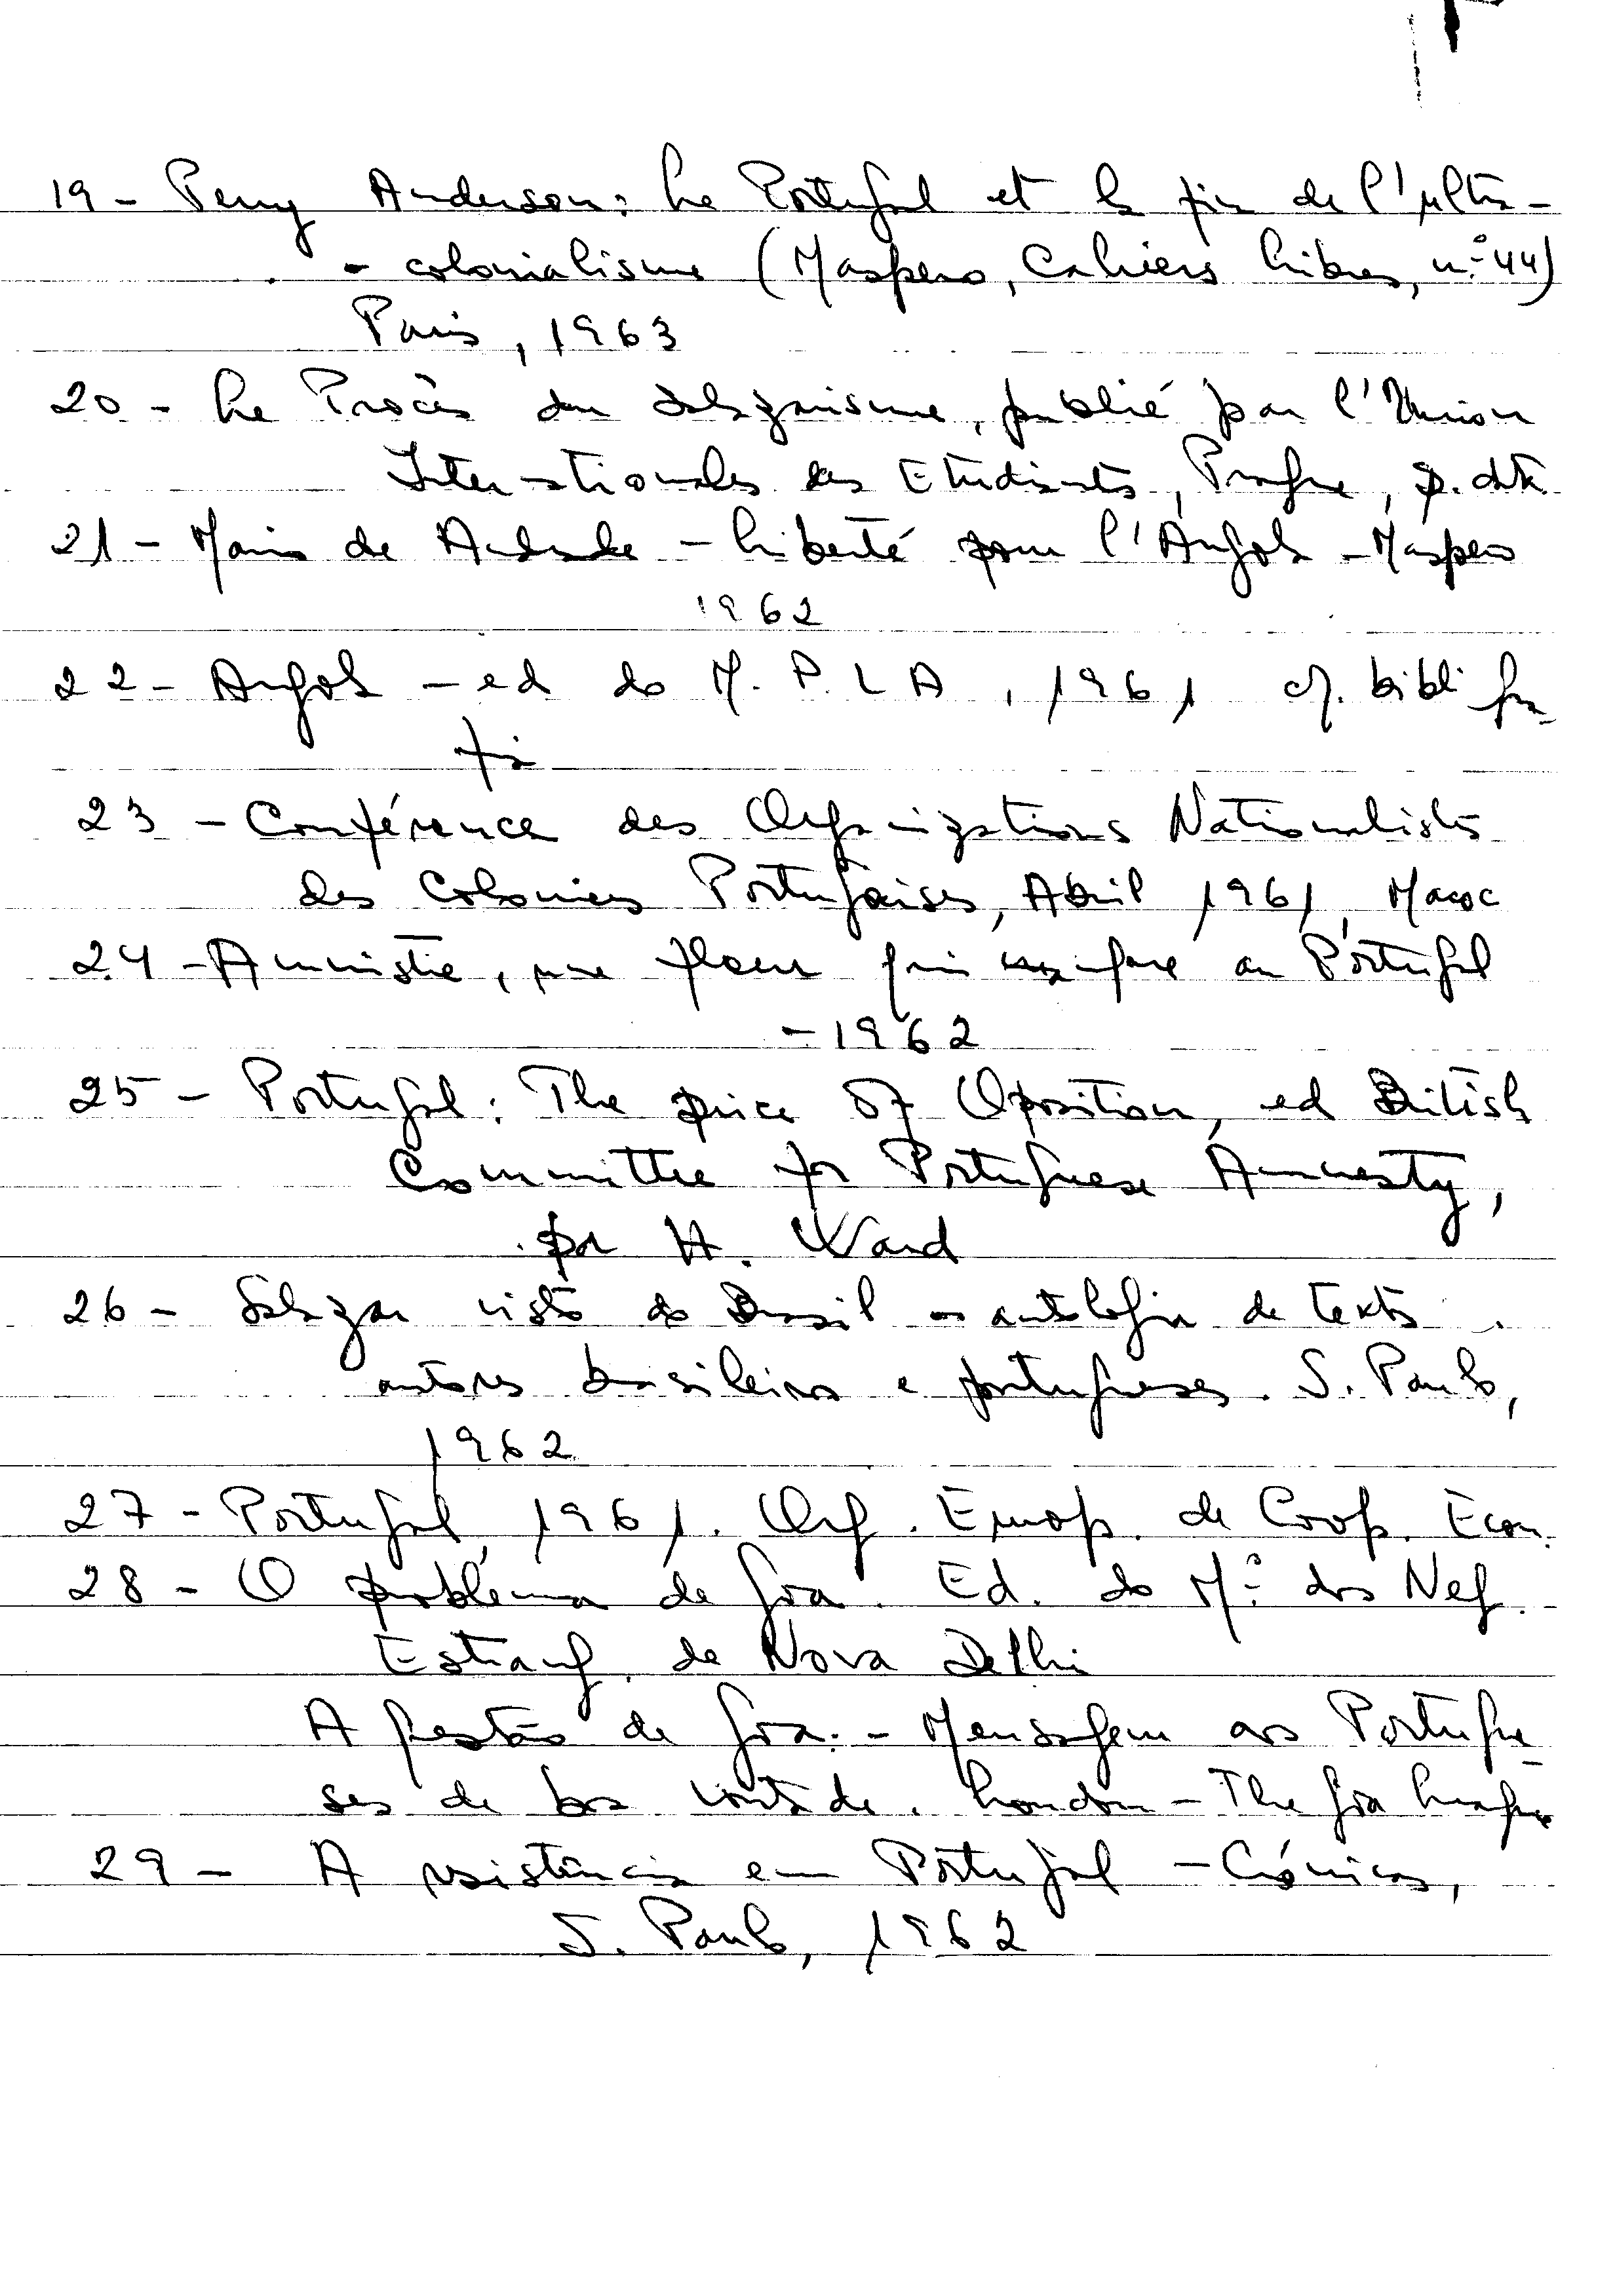 19 - Perry Anderson: Le Portugal et la fin de l'ultra-
- colonialisme (Maspero, Cahiers libres, n.º 44)
Paris, 1963
20 - Le Procès du salazarisme, publié par l'Union
Internationales des Etudiants, Prague, s. data
21 - Mario de Andrade - Liberté pour l'Angola - Maspero
1962
22 - Angola - ed do M. P. L A, 1961 c/. bibliogra-
fia
23 - Conférence des Organizations Nationalistes
des Colonies Portugaises, Abril 1961, Maroc
24 - Amnistie, une fleur qui manque au Portugal
- 1962
25 - Portugal: The price of Oposition, ed British
Committee for Portuguese Amnesty,
por H. Ward
26 - Salazar visto do Brasil - antologia de textos
autores brasileiros e portugueses. S. Paulo,
1962
27 - Portugal, 1961. Org. Europ. de Coop. Econ.
28 - O problema de Goa. Ed. do M.º dos Neg.
Estrang. de Nova Delhi
A questão de Goa. - Mensagem aos Portugue-
ses de boa vontade. London - The Goa League
29 - A resistência em Portugal - Crónicas,
S. Paulo, 1962